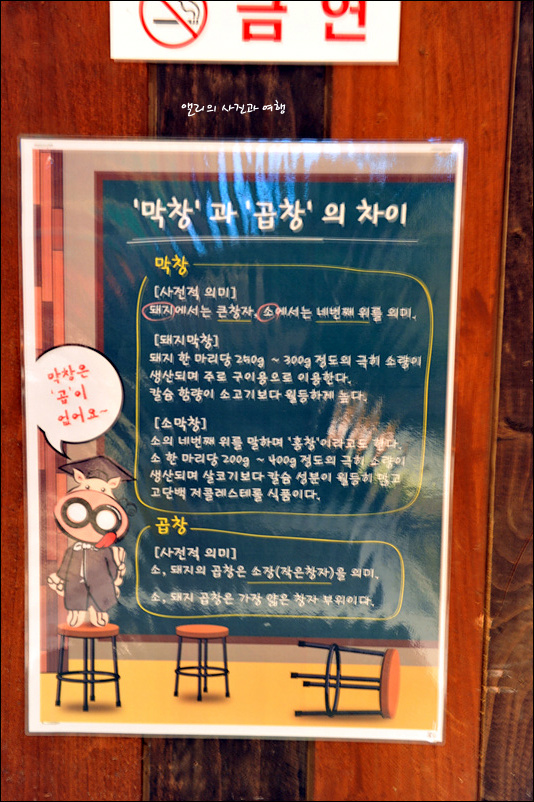 금연
앨리의 사건과 여행
'막창' 과 '곱창' 의 차이
막창
[사전적 의미]
돼지에서는 큰창자, 소에서는 네번째 위를 의미.
[돼지막창]
돼지 한 마리당 250g ~ 300g 정도의 극히 소량이
생산되며 주로 구이용으로 이용한다.
칼슘 함량이 소고기보다 월등하게 높다.
[소막창]
소의 네번째 위를 말하며 '홍창'이라고도 한다.
소 한 마리당 200g ~ 400g 정도의 극히 소량이
생산되며 살코기보다 칼슘 성분이 월등히 많고
고단백 저콜레스테롤 식품이다.
막창은
'곱'이
없어요~
곱창
[사전적 의미]
소, 돼지의 곱창은 소장(작은창자)를 의미.
소, 돼지 곱창은 가장 얇은 창자 부위이다.